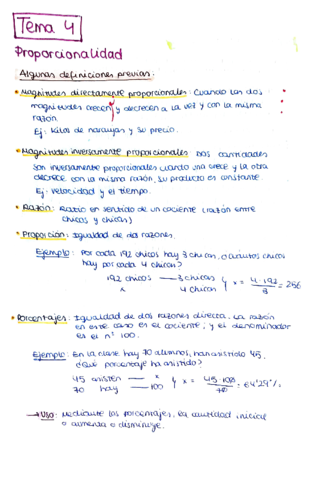 Tema 4
Proporcionalidad
Algunas definiciones previas:
• Magnitudes directamente proporcionales: Cuando las dos
magnitudes crecen y decrecen a la vez y con la misma
razón.
Ej: Kilos de naranjas y su precio.
• Magnitudes inversamente proporcionales Dos cantidades
son inversamente proporcionales cuando una crece y la otra
decrece con la misma razón, su producto es constante.
Ej: Velocidad y el tiempo.
• Razón: Ratio en sentido de un cociente (razón entre
chicos y chicas)
• Proporción: Igualdad de dos razones.
Ejemplo: Por cada 192 chicos hay 3 chicas, ¿cuántos chicos
hay por cada 4 chicas?
192 chicos — 3 chicas
x 4 chicas } x = 4·192 / 3 = 256
• Porcentajes: Igualdad de dos razones directa. La razón
en este caso es el cociente, y el denominador
es el nº 100.
Ejemplo: En la clase hay 70 alumnos, han asistido 45,
¿Qué porcentaje ha asistido?
45 asisten — x
70 hay — 100 } x = 45·100 / 70 = 64'29%
→ Uso: Mediante los porcentajes, la cantidad inicial
o aumenta o disminuye.